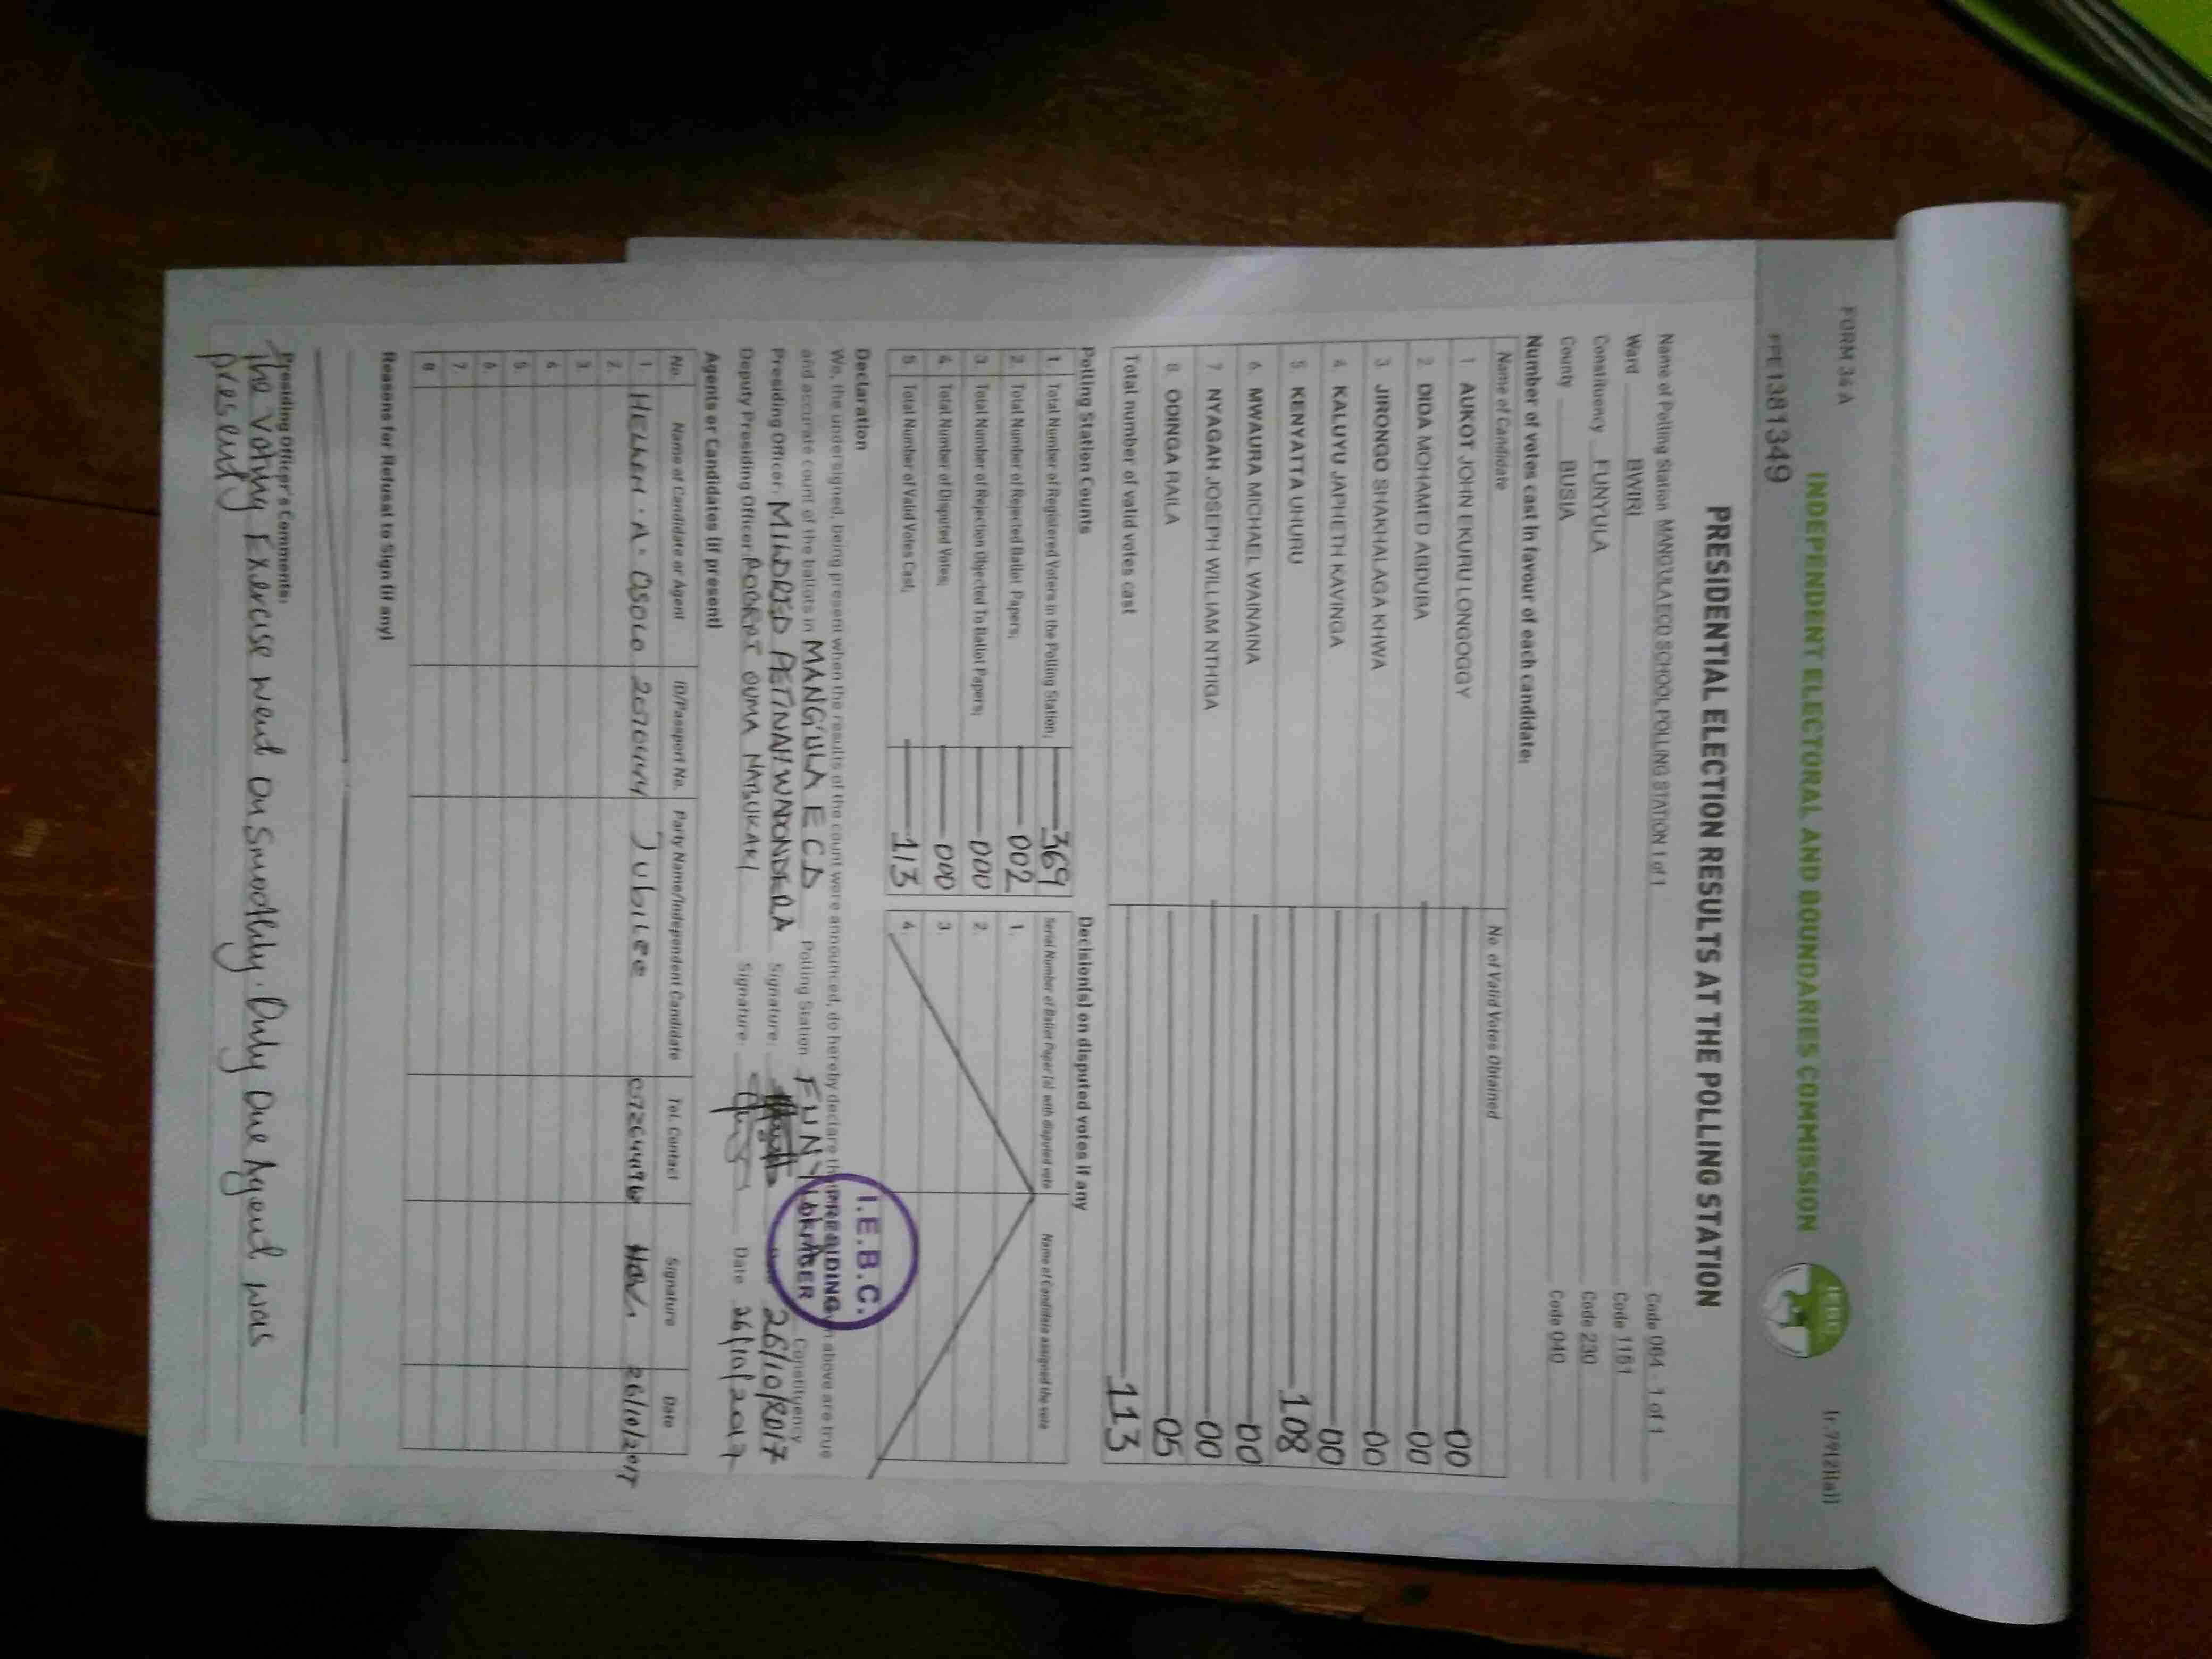 FORM 34 A
(r.79(2)(a))
INDEPENDENT ELECTORAL AND BOUNDARIES COMMISSION
IEBC
PPE1381349
PRESIDENTIAL ELECTION RESULTS AT THE POLLING STATION
Name of Polling Station MANG'ULA ECD SCHOOL POLLING STATION 1 of 1 Code 064 - 1 of 1
Ward BWIRI Code 1151
Constituency FUNYULA Code 230
County BUSIA Code 040
Number of votes cast in favour of each candidate:
Name of Candidate No. of Valid Votes Obtained
1. AUKOT JOHN EKURU LONGOGGY 00
2. DIDA MOHAMED ABDUBA 00
3. JIRONGO SHAKHALAGA KHWA 00
4. KALUYU JAPHETH KAVINGA 00
5. KENYATTA UHURU 108
6. MWAURA MICHAEL WAINAINA 00
7. NYAGAH JOSEPH WILLIAM NTHIGA 00
8. ODINGA RAILA 05
Total number of valid votes cast 113
Polling Station Counts
1. Total Number of Registered Voters in the Polling Station; 369
2. Total Number of Rejected Ballot Papers; 002
3. Total Number of Rejection Objected To Ballot Papers; 000
4. Total Number of Disputed Votes; 000
5. Total Number of Valid Votes Cast; 113
Decision(s) on disputed votes if any
Serial Number of Ballot Paper(s) with disputed vote Name of Candidate assigned the vote
1.
2.
3.
4.
Declaration
We, the undersigned, being present when the results of the count were announced, do hereby declare above are true
and accurate count of the ballots in MANG'ULA ECD Polling Station FUNYULA Constituency
Presiding Officer: MILDRED Signature: 26/10/2017
Deputy Presiding Officer: ROBERT OUMA Signature: Date 26/10/2017
I.E.B.C.
PRESIDING
OFFICER
Agents or Candidates (if present)
No. Name of Candidate or Agent ID/Passport No. Party Name/Independent Candidate Tel. Contact Signature Date
1. HELLEN . A . OSOLO Jubilee 26/10/2017
2.
3.
4.
5.
6.
7.
8.
Reasons for Refusal to Sign (if any)
Presiding Officer's Comments:
The voting Exercise went on smoothly. Only One Agent was
present